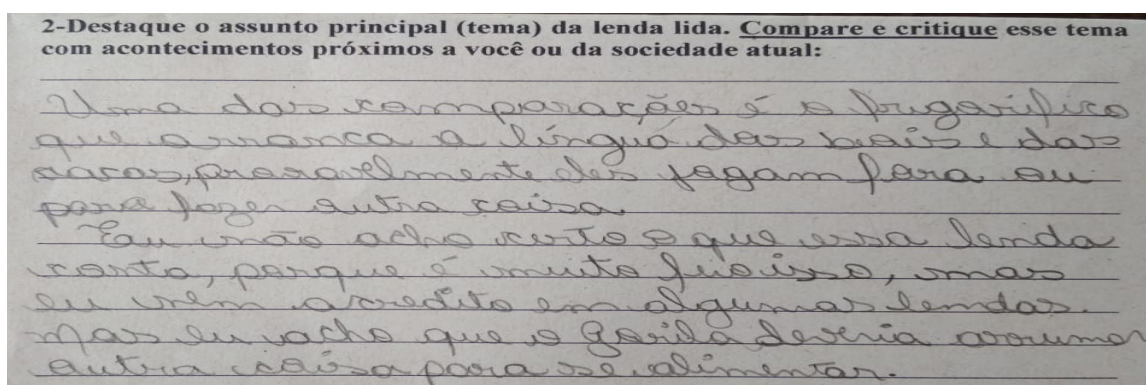 2-Destaque o assunto principal (tema) da lenda lida. Compare e critique esse tema
com acontecimentos próximos a você ou da sociedade atual:
Uma das comparações é o frugorifico
que arranca a língua dos bois e das
vacas, provavelmente eles jogam fora ou
para fazer outra coisa.
Eu não acho certo o que essa lenda
conta, porque é muito feio isso, mas
eu nem acredito em algumas lendas.
Mas eu acho que o Gorila deveria arrumar
outra coisa para se alimentar.